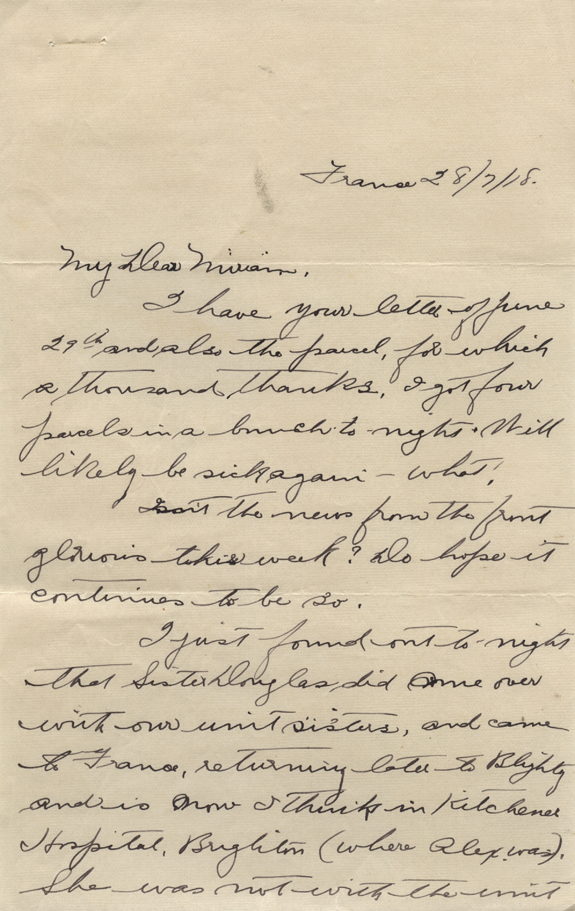 France 28/7/18.
My Dear Miriam,
I have your letter of June
29th and also the parcel, for which
a thousand thanks. I got four
parcels in a bunch to-night. Will
likely be sick again - what!
Isn't the news from the front
glorious this week? Do hope it
continues to be so.
I just found out to-night
that Sister Douglas did come over
with our unit sisters, and came
to France, returning later to Blighty
and is now I think in Kitchener
Hospital, Brighton (where Alex was).
She was not with the unit